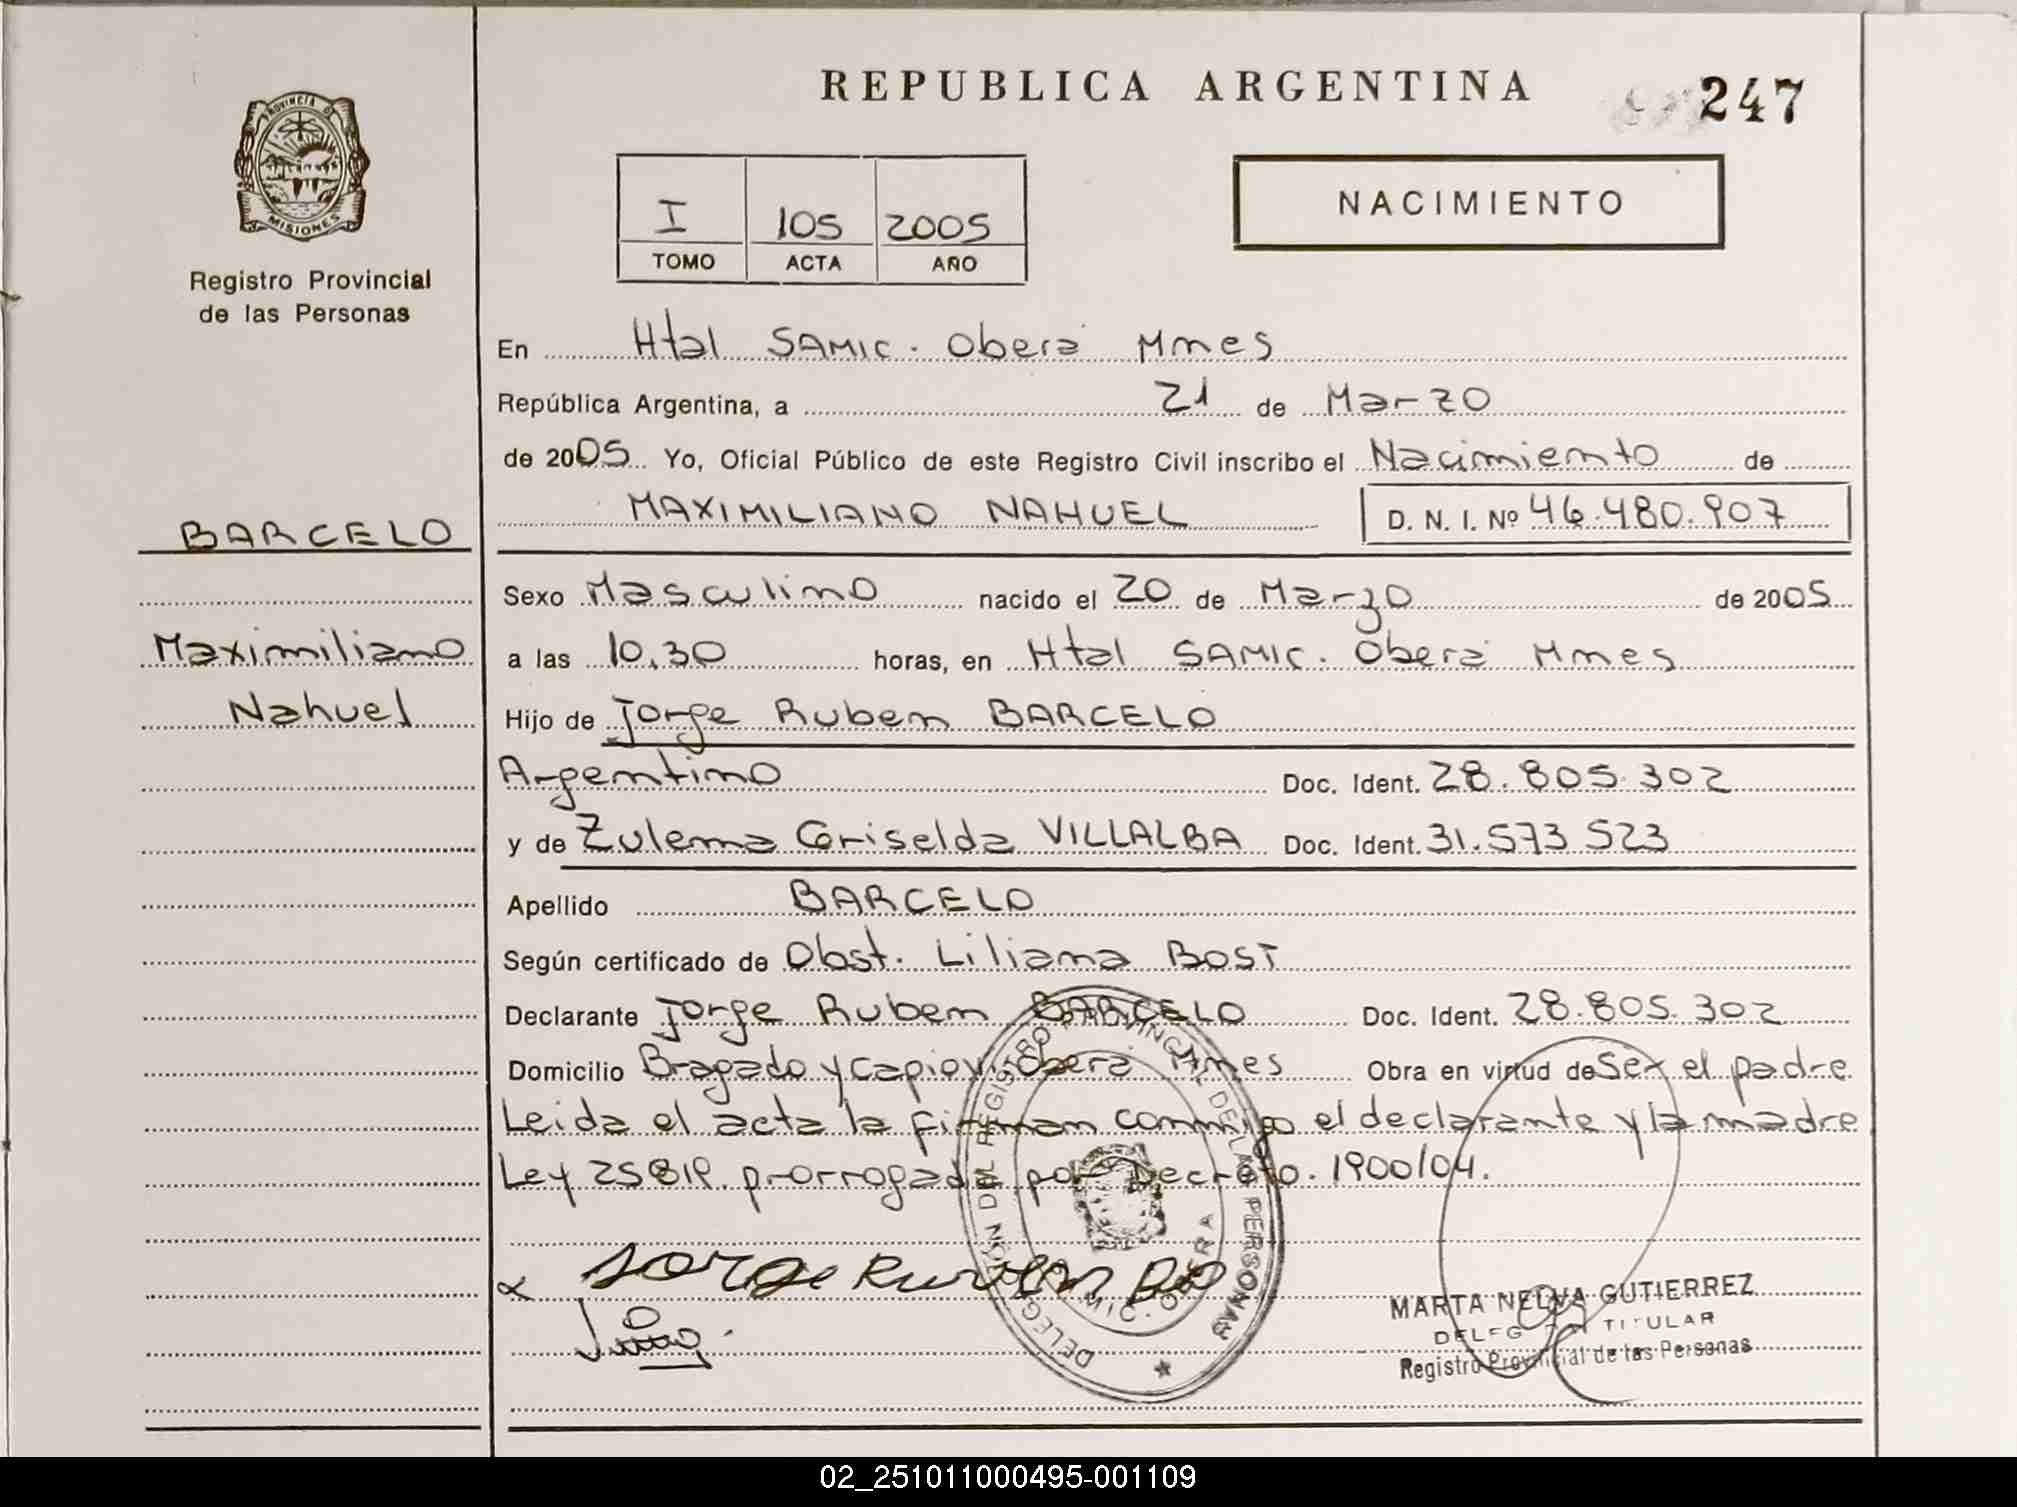 REPUBLICA ARGENTINA
247
PROVINCIA DE
MISIONES
Registro Provincial
de las Personas
I 105 2005
TOMO ACTA AÑO
NACIMIENTO
En Htal SAMIC. Oberá Mnes
República Argentina, a 21 de Marzo
de 2005 Yo, Oficial Público de este Registro Civil inscribo el Nacimiento de
MAXIMILIANO NAHUEL D. N. I. Nº 46.480.907
BARCELO
Sexo Masculino nacido el 20 de Marzo de 2005
Maximiliano
a las 10,30 horas, en Htal SAMIC. Oberá Mnes
Nahuel
Hijo de Jorge Ruben BARCELO
Argentino Doc. Ident. 28.805.302
y de Zulema Griselda VILLALBA Doc. Ident. 31.573 523
Apellido BARCELO
Según certificado de Obst. Liliana BOST
Declarante Jorge Ruben BARCELO Doc. Ident. 28.805.302
Domicilio Bragado y Capiovi Oberá Mnes Obra en virtud de Ser el padre
Leida el acta la firman conmigo el declarante y la madre
Ley 25819. prorrogada por Decreto. 1900/04.
DELEGACIÓN DEL REGISTRO PROVINCIAL DE LAS PERSONAS
Jorge Ruven Ba
MARTA NELVA GUTIERREZ
TITULAR
Registro Provincial de las Personas
02_251011000495-001109